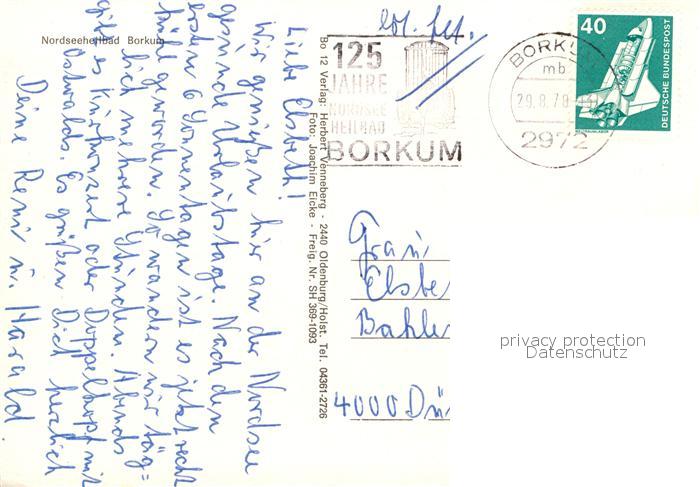 Nordseeheilbad Borkum
Liebe Elsbeth!
Wir genießen hier an der Nordsee
gesunde Urlaubstage. Nach den
ersten 6 Sonnentagen ist es jetzt recht
kühl geworden. So wandern wir täg=
lich mehrere Stunden. Abends
gibt es Kurkonzert oder Doppelkopf mit
Ostwalds. Es grüßen Dich herzlich
Deine Reni u. Harald.
Bo 12 Verlag: Herbert Venneberg - 2440 Oldenburg/Holst. Tel. 04361-2726
Foto: Joachim Eicke - Freig. Nr. SH 369-1093
125
JAHRE
NORDSEE
HEILBAD
BORKUM
BORKUM
mb
29.8.78
2972
40
DEUTSCHE BUNDESPOST
WELTRAUMLABOR
Frau
Elsbe
Bahle
4000 Dü
privacy protection
Datenschutz